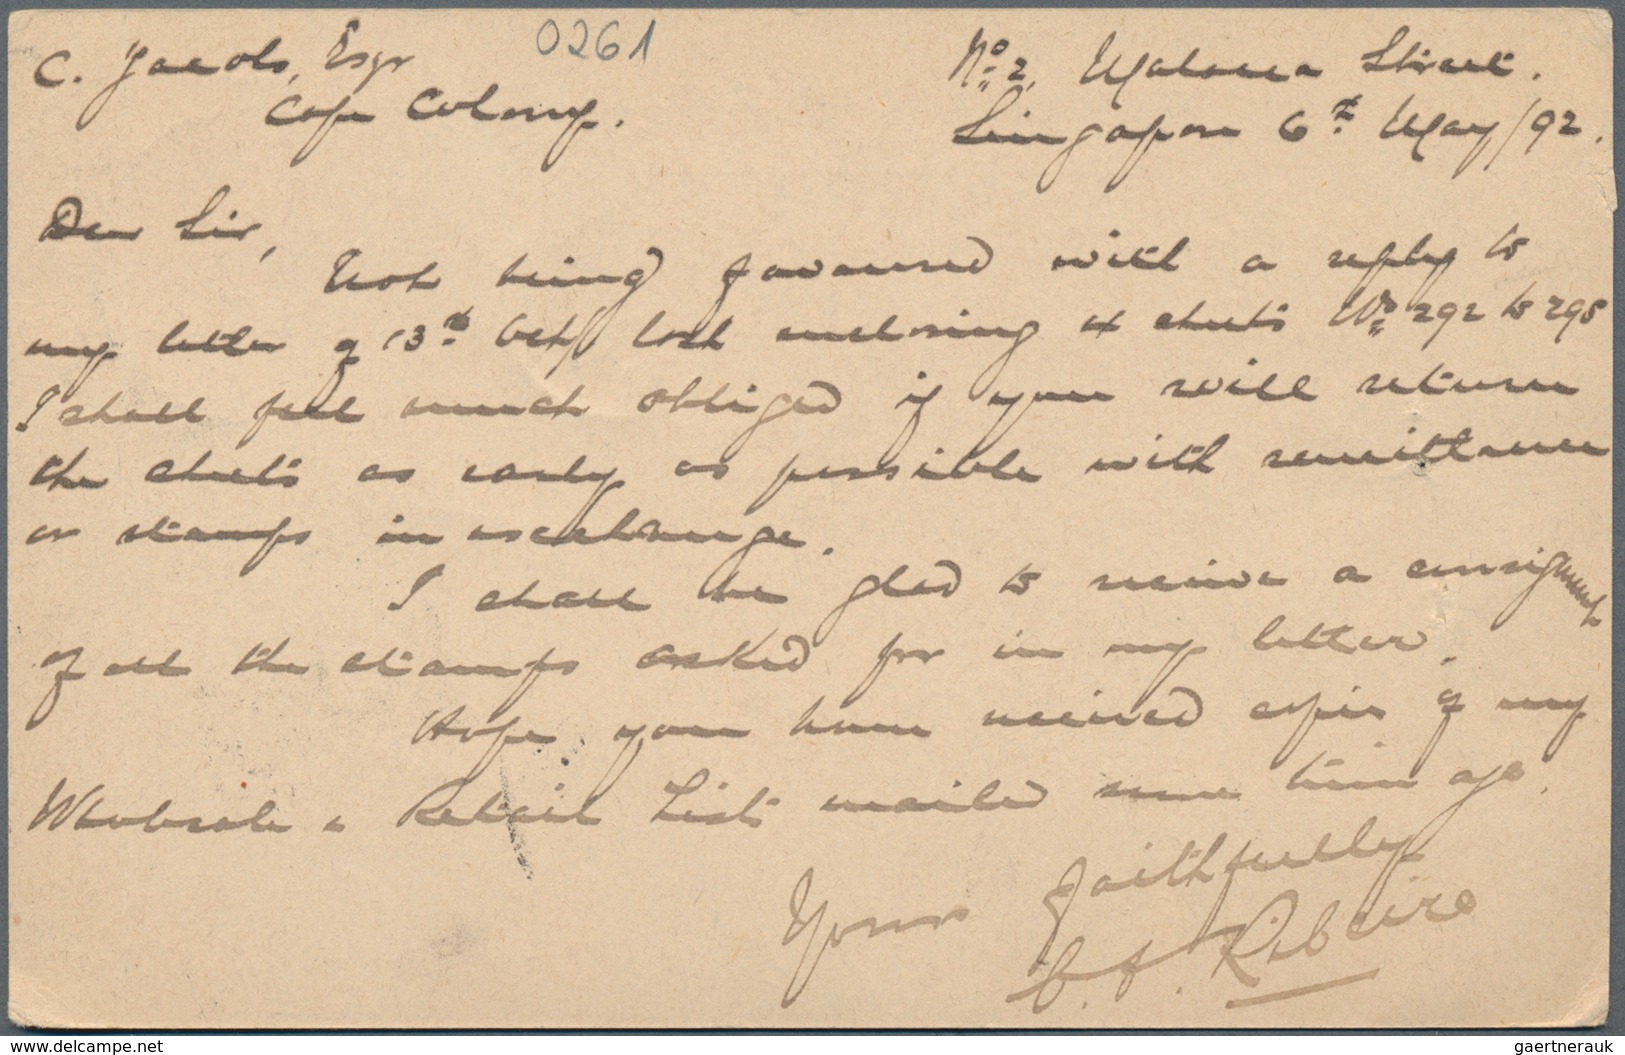 0261
C. Jacobs, Esqr
Cape Colony.
No. 2, Malacca Street.
Singapore 6th May/92.
Dear Sir,
Not being favoured with a reply to
my letter of 13th Oct/ last enclosing 4 sheets No. 292 to 295
I shall feel much obliged if you will return
the sheets as early as possible with remittance
or stamps in exchange.
I shall be glad to receive a consignment
of all the stamps asked for in my letter.
Hope you have received copies of my
Wholesale & Retail Lists mailed some time ago.
Yours faithfully
Ribeiro
www.delcampe.net
gaertnerauk